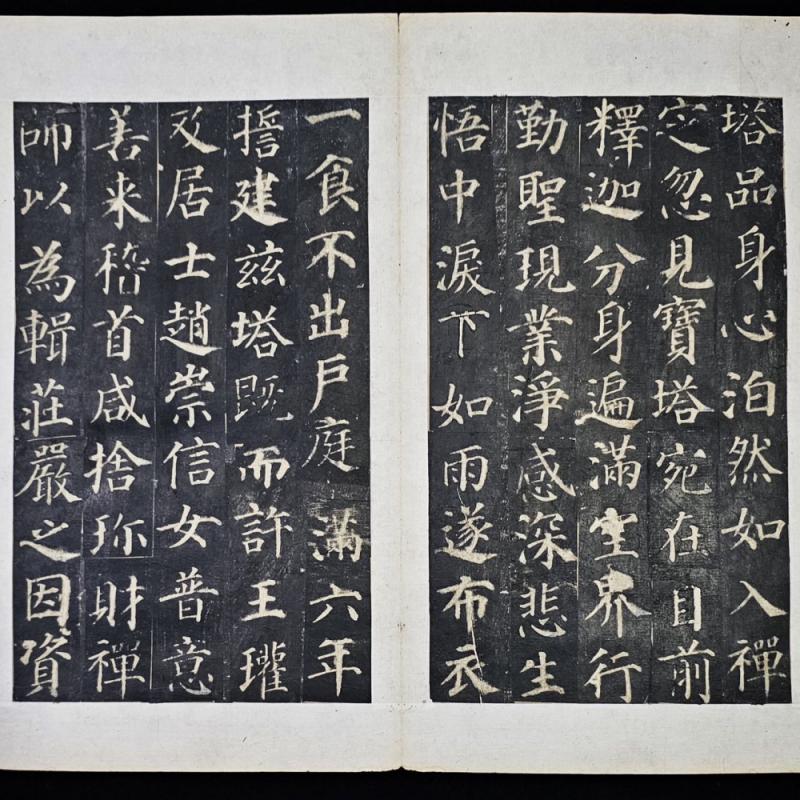 塔品身心泊然如入禪
定忽見寶塔宛在目前
釋迦分身遍滿空界行
勤聖現業淨感深悲生
悟中淚下如雨遂布衣
一食不出戶庭滿六年
誓建茲塔既而許王瓘
及居士趙崇信女普意
善来稽首咸捨珎財禪
師以為輯莊嚴之因資